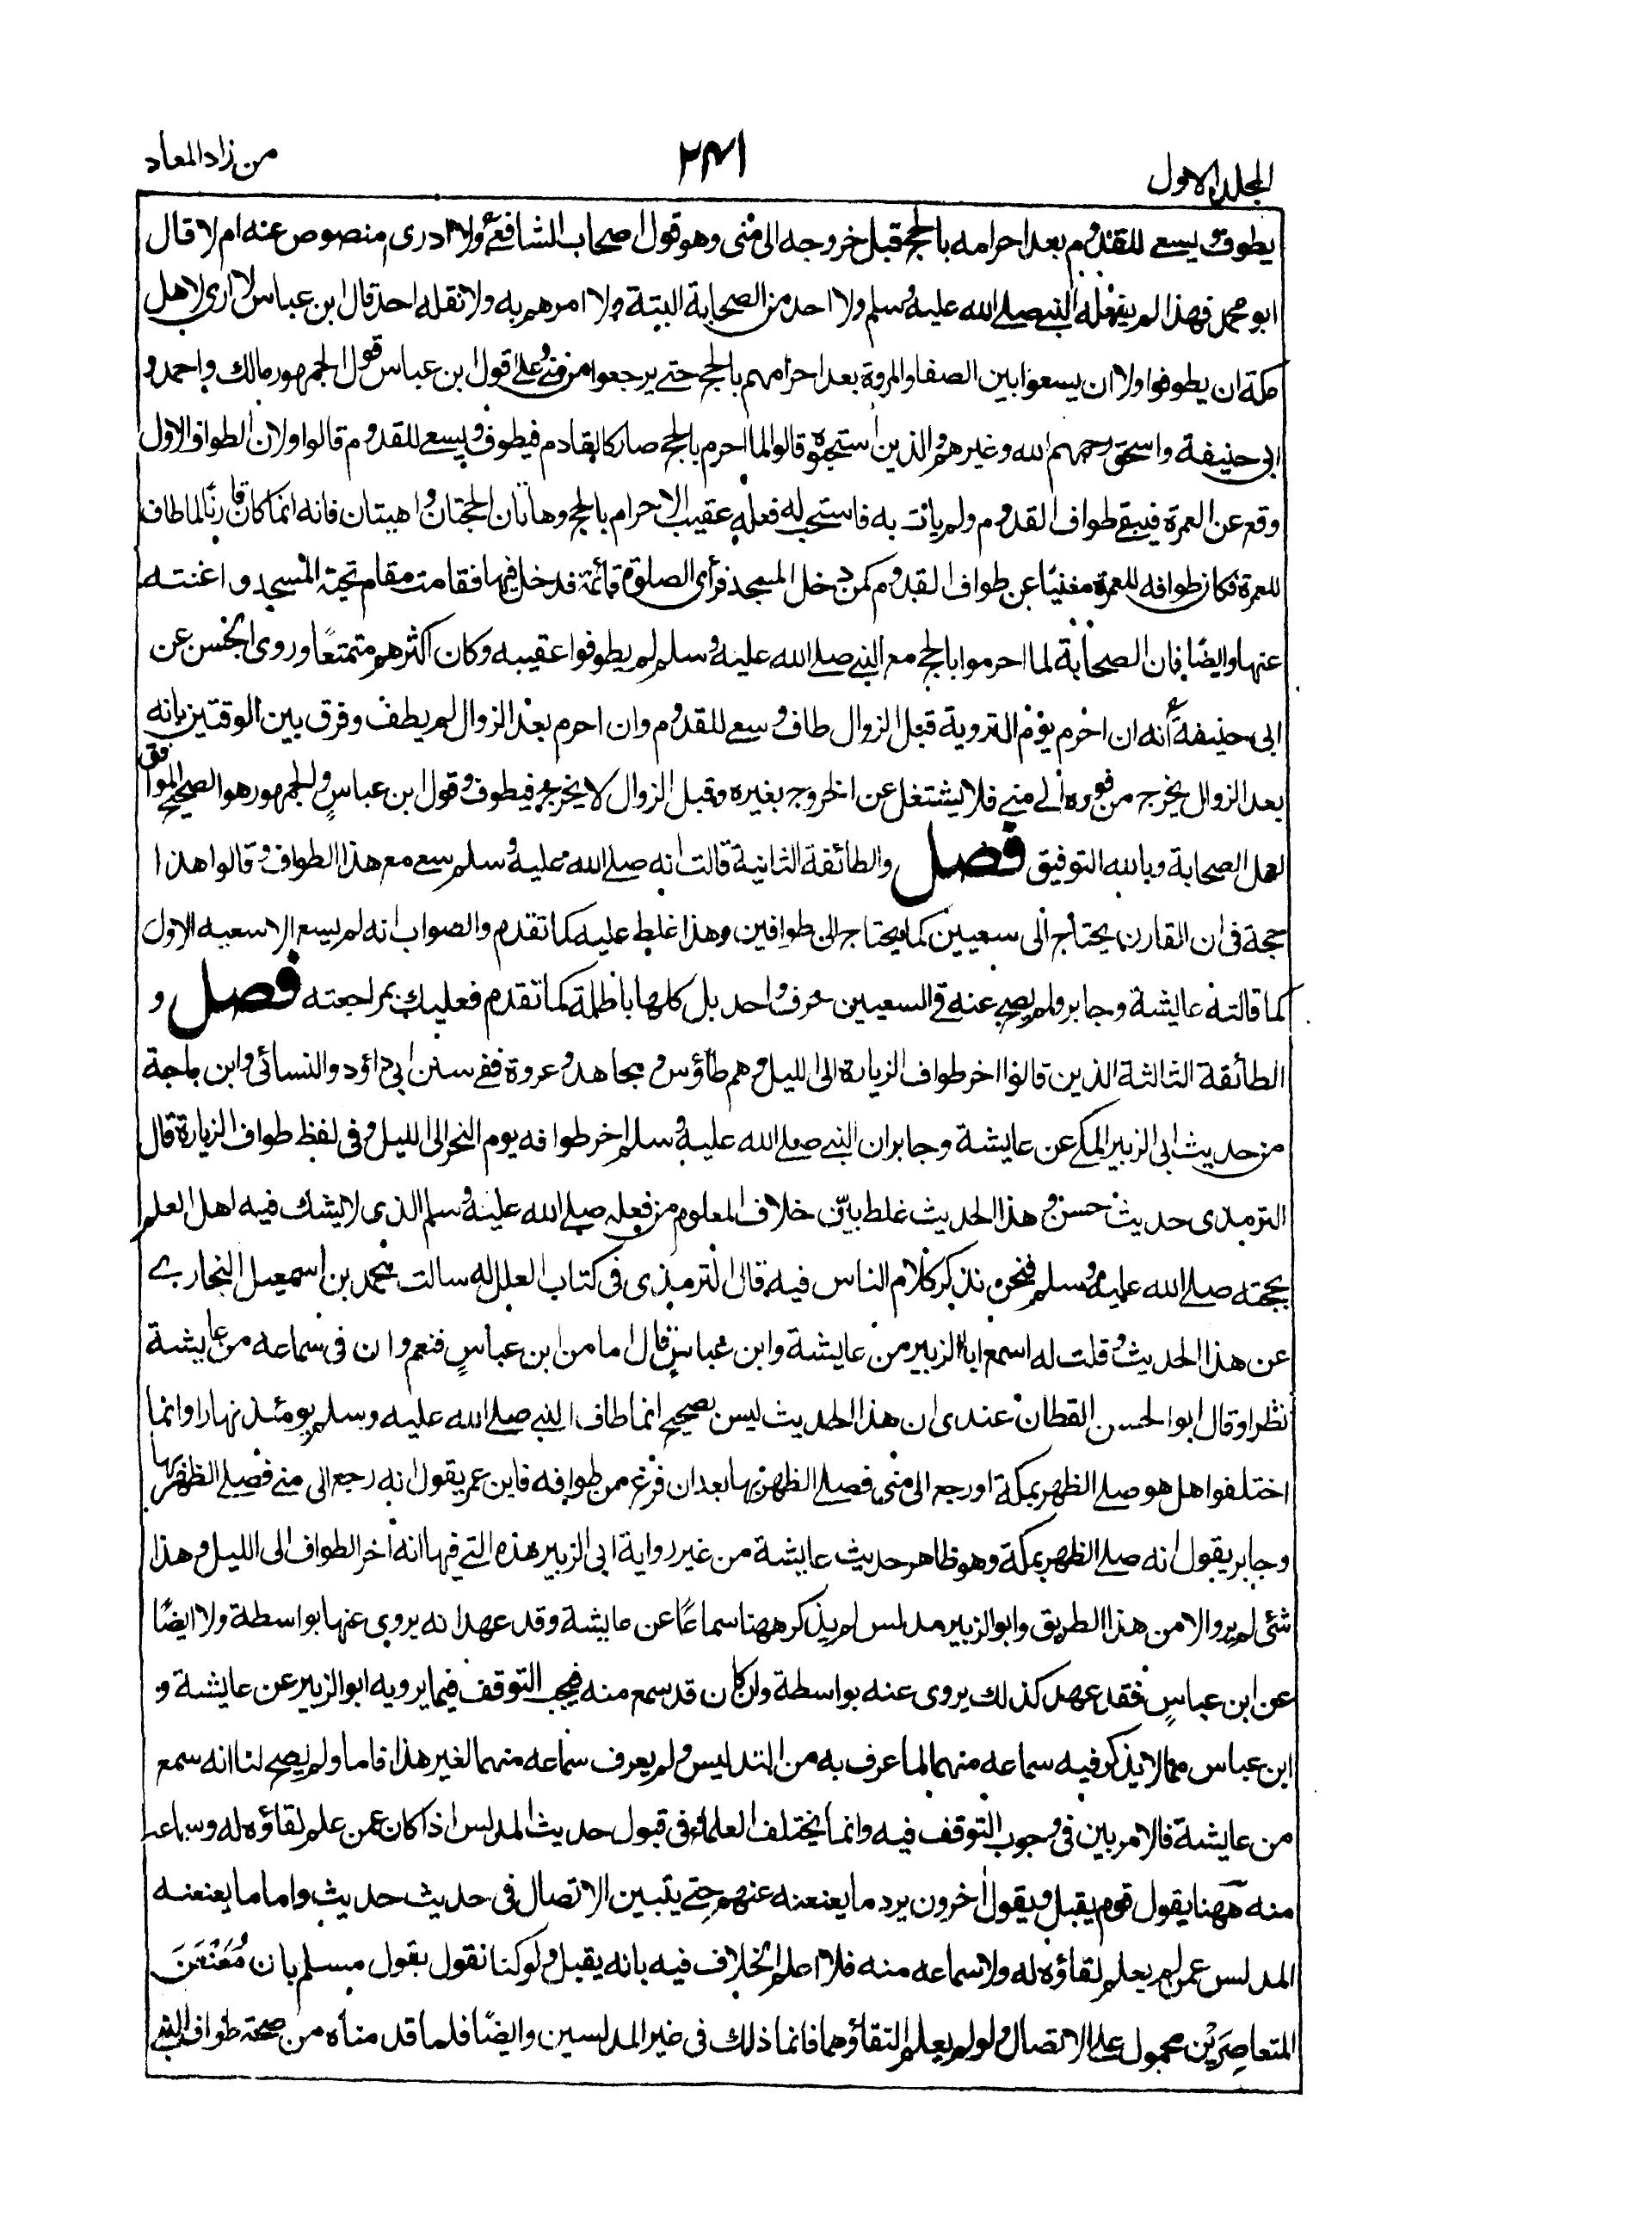 المجلد الاول
٢٤١
من زاد المعاد
يطوف ويسعى للقدوم بعد احرامه بالحج قبل خروجه الى منى وهو قول اصحاب الشافعي ولا ادرى منصوص عنه ام لا قال
ابو محمد فهذا لم يفعله النبي صلے الله عليه وسلم ولا احد من الصحابة البتة ولا امرهم به ولا نقله احد قال ابن عباس لا ارى لاهل
مكة ان يطوفوا ولا ان يسعوا بين الصفا والمروة بعد احرامهم بالحج حتے يرجعوا من منے وعلے قول ابن عباس قول الجمهور مالك واحمد و
ابى حنيفة واسحق رحمهم الله وغيرهم والذين استحبوه قالوا لما احرم بالحج صار كالقادم فيطوف ويسعے للقدوم قالوا ولان الطواف الاول
وقع عن العمرة فيبقے طواف القدوم ولم يات به فاستحب له فعله عقيب الاحرام بالحج وهاتان الحجتان واهيتان فانه انما كان قارنًا لما طاف
للعمرة فكان طوافه للعمرة مغنيًا عن طواف القدوم كمن دخل المسجد فرأى الصلوة قائمة فدخل فيها فقامت مقام تحية المسجد واغنته
عنها وايضًا فان الصحابة لما احرموا بالحج مع النبي صلے الله عليه وسلم لم يطوفوا عقيبه وكان اكثرهم متمتعًا وروى الحسن عن
ابى حنيفة أنه ان احرم يوم التروية قبل الزوال طاف وسعے للقدوم وان احرم بعد الزوال لم يطف وفرق بين الوقتين بانه
بعد الزوال يخرج من فوره الے منے فلا يشتغل عن الخروج بغيره وقبل الزوال لا يخرج فيطوف وقول ابن عباسٍ والجمهور هو الصحيح الموافق
لعمل الصحابة وبالله التوفيق فصل والطائفة الثانية قالت انه صلے الله عليه وسلم سعے مع هذا الطواف وقالوا هذا
حجة فى ان القارن يحتاج الى سعيين كما يحتاج الى طوافين وهذا غلط عليه كما تقدم والصواب انه لم يسع الا سعيه الاول
كما قالته عايشة وجابر ولم يصح عنه فى السعيين حرف واحد بل كلها باطلة كما تقدم فعليك بمراجعته فصل و
الطائفة الثالثة الذين قالوا اخر طواف الزيارة الى الليل وهم طاؤس ومجاهد وعروة ففے سنن ابى داؤد والنسائى وابن ماجة
من حديث ابى الزبير المكے عن عايشة وجابر ان النبي صلے الله عليه وسلم اخر طوافه يوم النحر الى الليل وفى لفظ طواف الزيارة قال
الترمذى حديث حسن وهذا الحديث غلط بيّن خلاف المعلوم من فعله صلے الله عليه وسلم الذى لا يشك فيه اهل العلم
بحجته صلے الله عليه وسلم فنحن نذكر كلام الناس فيه قال الترمذى فى كتاب العلل له سالت محمد بن اسمعيل البخارے
عن هذا الحديث وقلت له اسمع ابا الزبير من عايشة وابن عباسٍ قال اما من ابن عباسٍ فنعم وان فى سماعه من عايشة
نظرا وقال ابو الحسن القطان عندى ان هذا الحديث ليس بصحيح انما طاف النبي صلے الله عليه وسلم يومئذ نهارا وانما
اختلفوا هل هو صلے الظهر بمكة او رجع الى منى فصلے الظهر بها بعد ان فرغ من طوافه فابن عمر يقول انه رجع الى منے فصلے الظهر بها
وجابر يقول انه صلے الظهر بمكة وهو ظاهر حديث عايشة من غير رواية ابى الزبير هذه التے فيها انه اخر الطواف الى الليل وهذا
شئ لم يرو الا من هذا الطريق وابو الزبير مدلس لم يذكر ههنا سماعًا عن عايشة وقد عهد انه يروى عنها بواسطة ولا ايضًا
عن ابن عباسٍ فقد عهد كذلك يروى عنه بواسطة وان كان قد سمع منه فيجب التوقف فيما يرويه ابو الزبير عن عايشة و
ابن عباس مما لا يذكر فيه سماعه منهما لما عرف به من التدليس ولم يعرف سماعه منهما لغير هذا فاما ولم يصح لنا انه سمع
من عايشة فالامر بين فى وجوب التوقف فيه وانما يختلف العلماء فى قبول حديث المدلس اذا كان عمن علم لقاؤه له وسماعه
منه ههنا يقول قوم يقبل ويقول اٰخرون يرد ما يعنعنه عنهم حتے يتبين الاتصال فى حديث حديث واما ما يعنعنه
المدلس عمن لم يعلم لقاؤه له ولا سماعه منه فلا اعلم الخلاف فيه بانه يقبل ولو كنا نقول بقول مسلم بان مُعَنْعَنَ
المتعاصِرَيْن محمول على الاتصال ولو لم يعلم التقاؤهما فانما ذلك فى غير المدلسين وايضًا فلما قدمناه من صحة طواف النبي